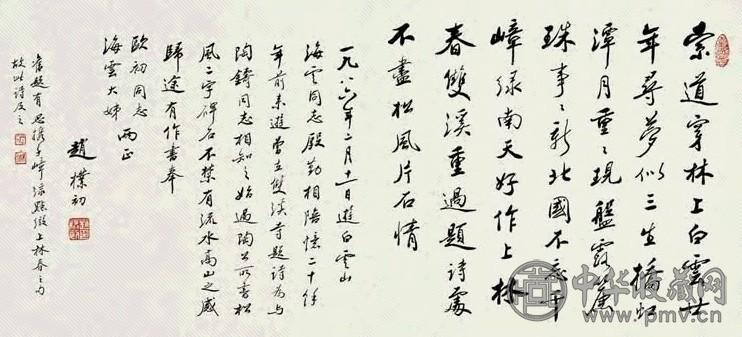 索道穿林上白雲廿
年尋夢似三生橋虹
潭月重〻現盤露簷
珠事〻新北國不忘千
嶂緑南天好作上林
春雙溪重過題詩處
不盡松風片石情
一九八六年二月十一日遊白雲山
海雲同志殷勤相陪憶二十餘
年前來遊曾在雙溪寺題詩為与
陶鑄同志相知之始過陶公所書松
風二字碑石不禁有流水高山之感
歸途有作書奉
歐初同志
海雲大姊 兩正
趙樸初
舊題有思攜千嶂緑點綴上林春之句
故此詩及之
中华收藏网
www.pmv.cn